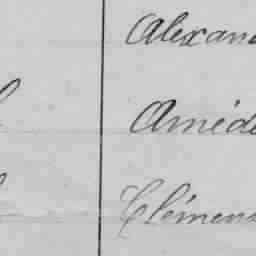 Alexan
Améde
Clémen